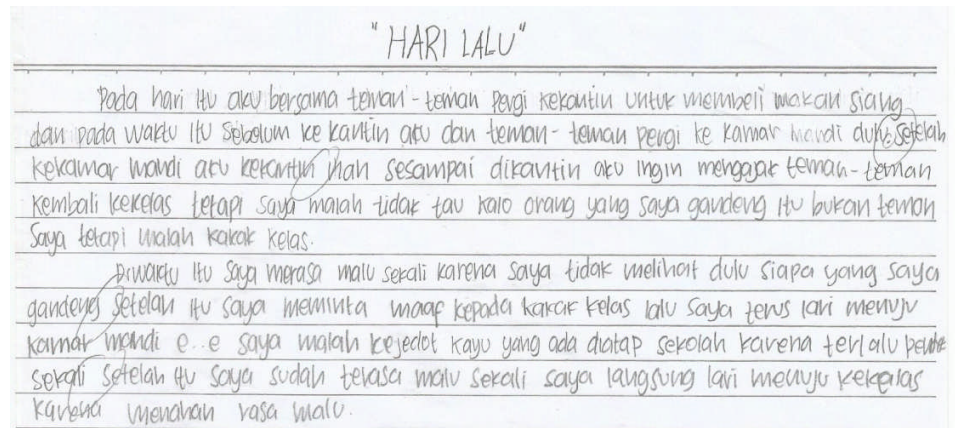 "HARI LALU"
Pada hari itu aku bersama teman-teman pergi kekantin untuk membeli makan siang
dan pada waktu itu sebelum ke kantin aku dan teman-teman pergi ke kamar mandi dulu. setelah
kekamar mandi aku kekantin nah sesampai dikantin aku ingin mengajak teman-teman
kembali kekelas tetapi saya malah tidak tau kalo orang yang saya gandeng itu bukan teman
saya tetapi malah kakak kelas.
Diwaktu itu saya merasa malu sekali karena saya tidak melihat dulu siapa yang saya
gandeng setelah itu saya meminta maaf kepada kakak kelas lalu saya terus lari menuju
kamar mandi e..e saya malah kejedot kayu yang ada diatap sekolah karena terlalu
sekali setelah itu saya sudah terasa malu sekali saya langsung lari menuju kekelas
karena menahan rasa malu.